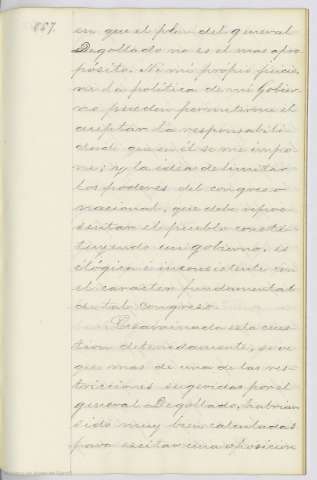 857.
en que el plan del general
Degollado no es el mas apro
pósito. Ni mi propio juicio,
ni la política de mi Gobier
no pueden permitirme el
aceptar la responsabili
dad que en él se me impo
ne; y la idea de limitar
los poderes del congreso
nacional, que debe repre
sentar el pueblo consti
tuyendo un gobierno, es
ilógica é inconsistente con
el carácter fundamental
de tal congreso.
Examinada esta cues
tion detenidamente, se ve
que mas de una de las res
tricciones sugeridas por el
general Degollado, habrian
sido muy bien calculadas
para escitar una oposicion